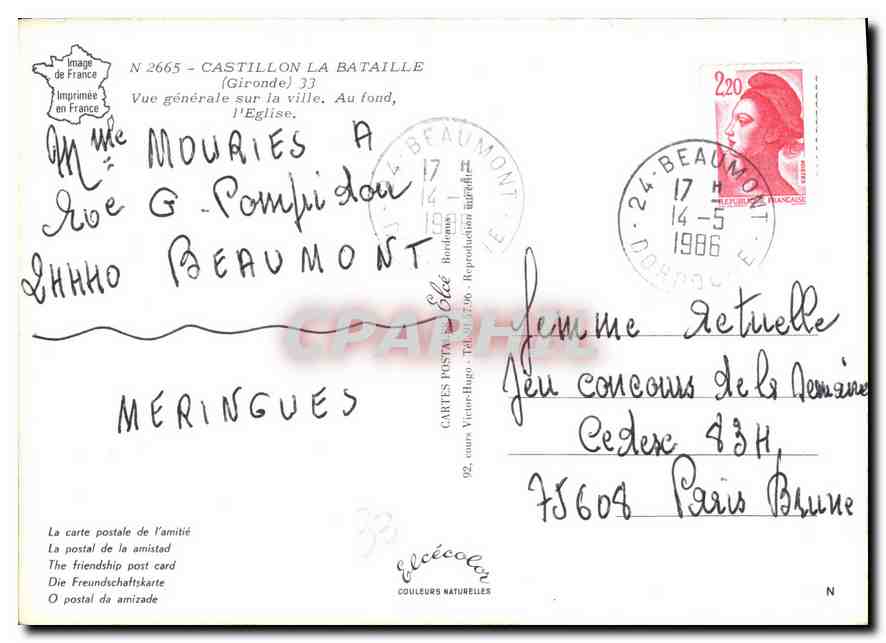 Image
de France
Imprimée
en France
N 2665 - CASTILLON LA BATAILLE
(Gironde) 33
Vue générale sur la ville. Au fond,
l'Eglise.
Mme MOURIES A
Rue G. Pompidou
24440 BEAUMONT
MERINGUES
La carte postale de l'amitié
La postal de la amistad
The friendship post card
Die Freundschaftskarte
O postal da amizade
24 - BEAUMONT
17 H
14 -
198
CARTES POSTALES Elcé Bordeaux
92, cours Victor-Hugo - Tél. 91.57.96 - Reproduction interdite
Elcécolor
COULEURS NATURELLES
33
CPAPHIL
2,20
POSTES
REPUBLIQUE FRANÇAISE
24 - BEAUMONT
17 H
14-5
1986
DORDOGNE
Femme Actuelle
Jeu concours de la Semaine
Cedex 83H
75608 Paris Brune
N